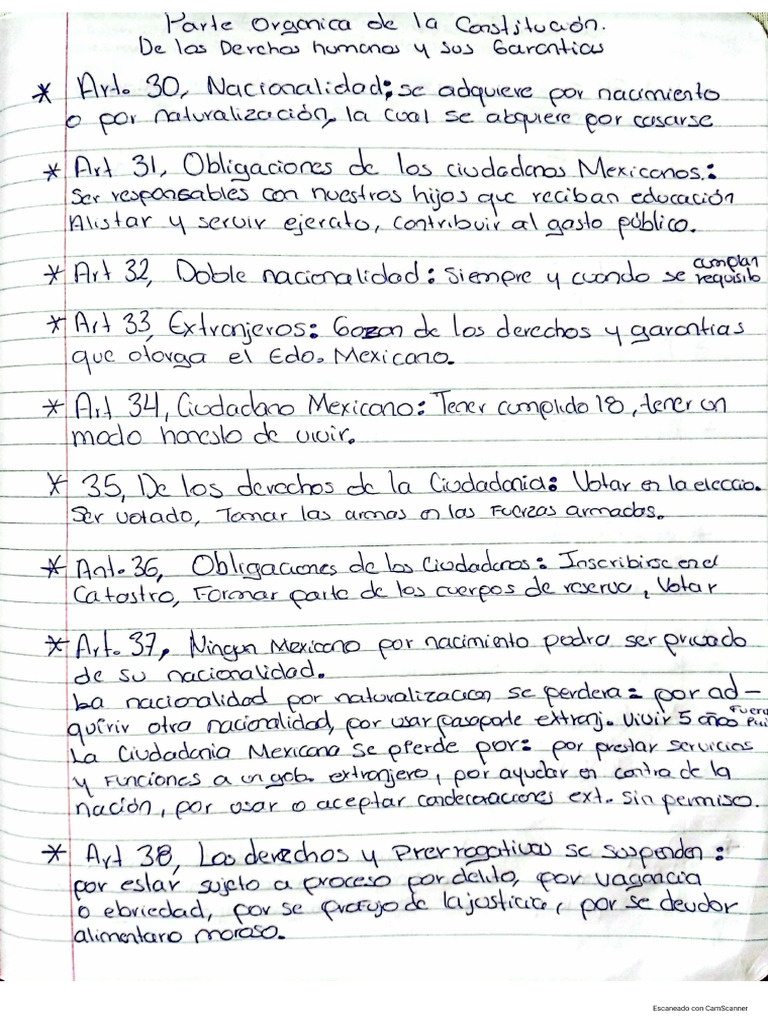 Parte Organica de la Constitución.
De los Derchos humanos y sus Garantias
* Art. 30, Nacionalidad; se adquiere por nacimiento
o por naturalización, la cual se abquiere por casarse
* Art 31, Obligaciones de los ciudadanos Mexicanos.:
Ser responsables con nuestros hijos que reciban educación
Alistar y servir ejercito, contribuir al gasto público.
* Art 32, Doble nacionalidad: Siempre y cuando se cumplan requisito
* Art 33, Extranjeros: Gozan de los derechos y garantias
que otorga el Edo. Mexicano.
* Art 34, Ciudadano Mexicano: Tener cumplido 18, tener un
modo honesto de vivir.
* 35, De los derechos de la Ciudadania: Votar en la eleccio.
Ser votado, Tomar las armas en las Fuerzas armadas.
* Art. 36, Obligaciones de los Ciudadanos: Inscribirse en el
Catastro, Formar parte de los cuerpos de reserva, Votar
* Art. 37, Ningun Mexicano por nacimiento podra ser privado
de su nacionalidad.
La nacionalidad por naturalización se perdera: por ad-
quirir otra nacionalidad, por usar pasaporte extranj. vivir 5 años fuera
La Ciudadania Mexicana se pierde por: por prestar servicios
y Funciones a un gob. extranjero, por ayudar en contra de la
nación, por usar o aceptar condecoraciones ext. sin permiso.
* Art 38, Los derechos y Prerrogativas se suspenden:
por estar sujeto a proceso por delito, por vagancia
o ebriedad, por se profujo de la justicia, por se deudor
alimentaro moroso.
Escaneado con CamScanner